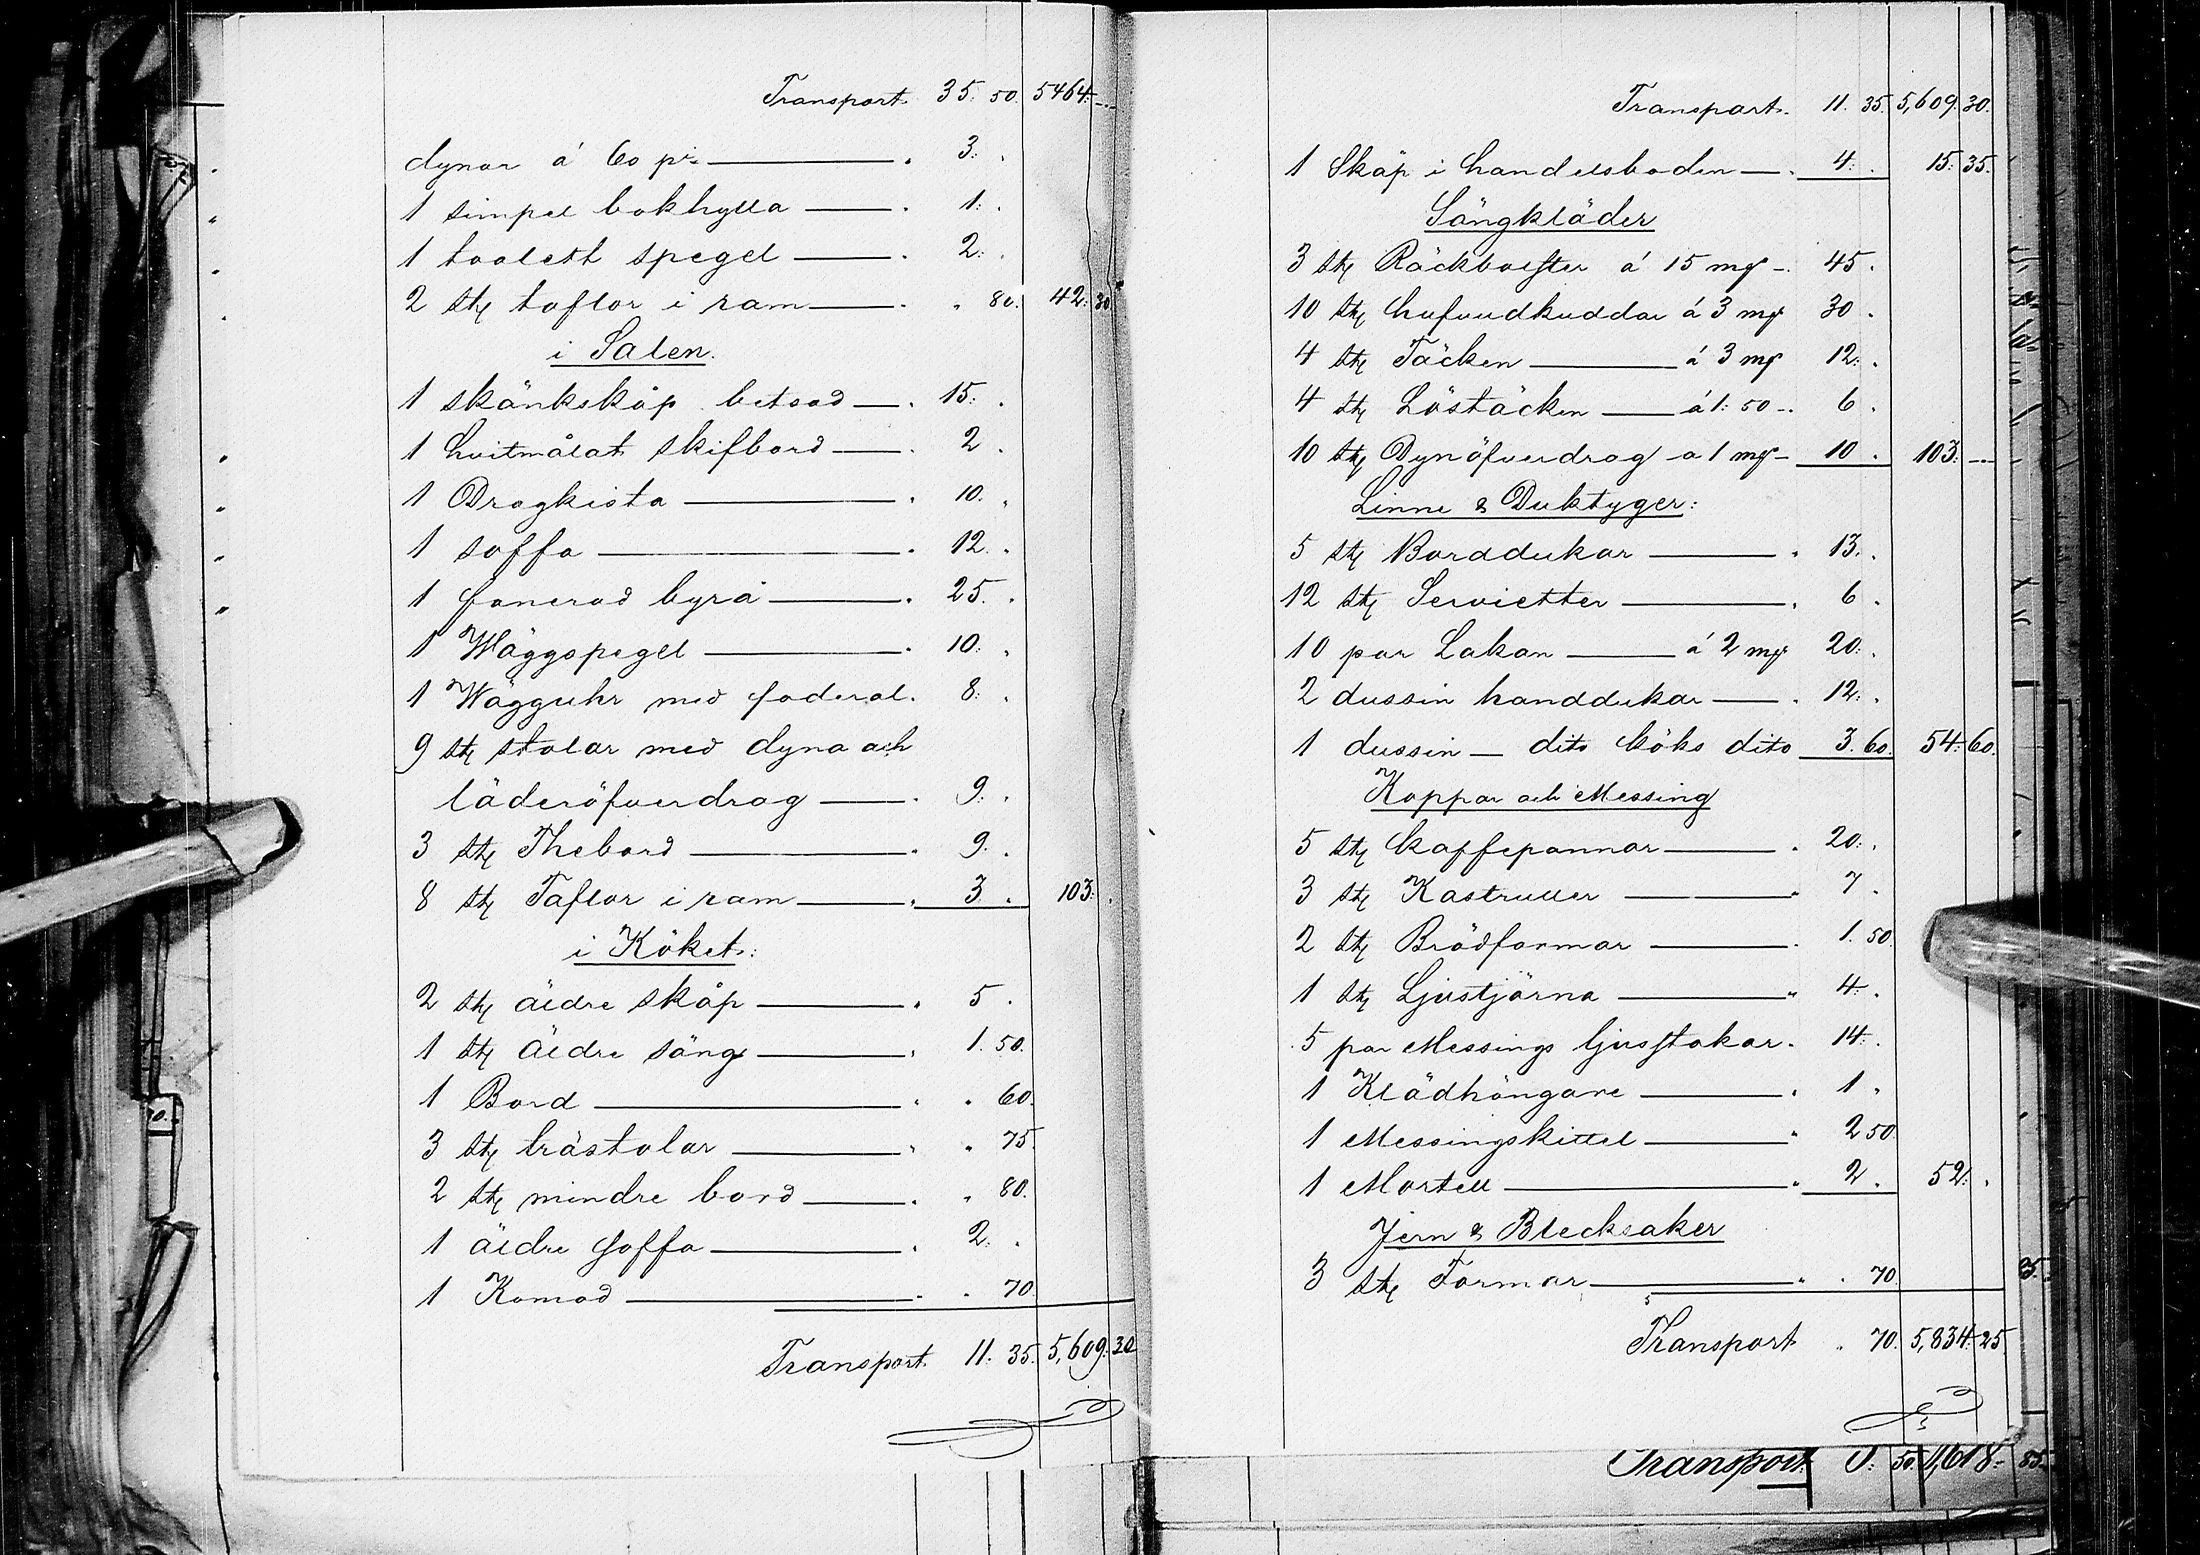 Transport. 35. 50. 5464.
dynor á 60 pi 3.
1 simpel bokhylla 1.
1 toalett spegel 2.
2 st taflor i ram 80. 42. 30
i Salen.
1 skänkskåp betsad 15.
1 hvitmålat skifbord 2
1 Dragkista 10.
1 soffa 12.
1 fanerad byrå 25.
1 Wäggspegel 10.
1 Wägguhr med foderal. 8.
9 st stolar med dyna och
läderöfverdrag 9.
3 st Thebord 9.
8 st Taflor i ram 3. 103.
i Köket:
2 st äldre skåp 5.
1 st äldre säng 1. 50.
1 Bord 60.
3 st trästolar 75
2 st mindre bord 80.
1 äldre soffa 2.
1 Komod 70
Transport. 11. 35. 5,609. 30
Transport. 11. 35. 5,609. 30.
1 Skåp i handelsboden 4. 15. 35.
Sängkläder
3 st Räckbolster á 15 mk 45.
10 st hufvudkuddar á 3 mk 30.
4 st Täcken á 3 mk 12.
4 st Löstäcken á 1: 50 6.
10 st Dynöfverdrag a 1 mk 10. 103.
Linne & Duktyger:
5 st Borddukar 13.
12 st Servietter 6.
10 par Lakan á 2 mk 20.
2 dussin handdukar 12.
1 dussin dito köks dito 3. 60. 54. 60.
Koppar och Messing
5 st kaffepannor 20.
3 st Kastruller 7.
2 st Brödformar 1. 50.
1 st Ljustjärna 4.
5 par Messings ljusstakar. 14.
1 Klädhängare 1
1 Messingskittel 2 50.
1 Mortell 2. 52.
Jern & Blecksaker
3 st Formar 70
Transport 70. 5,834. 25.
Transport